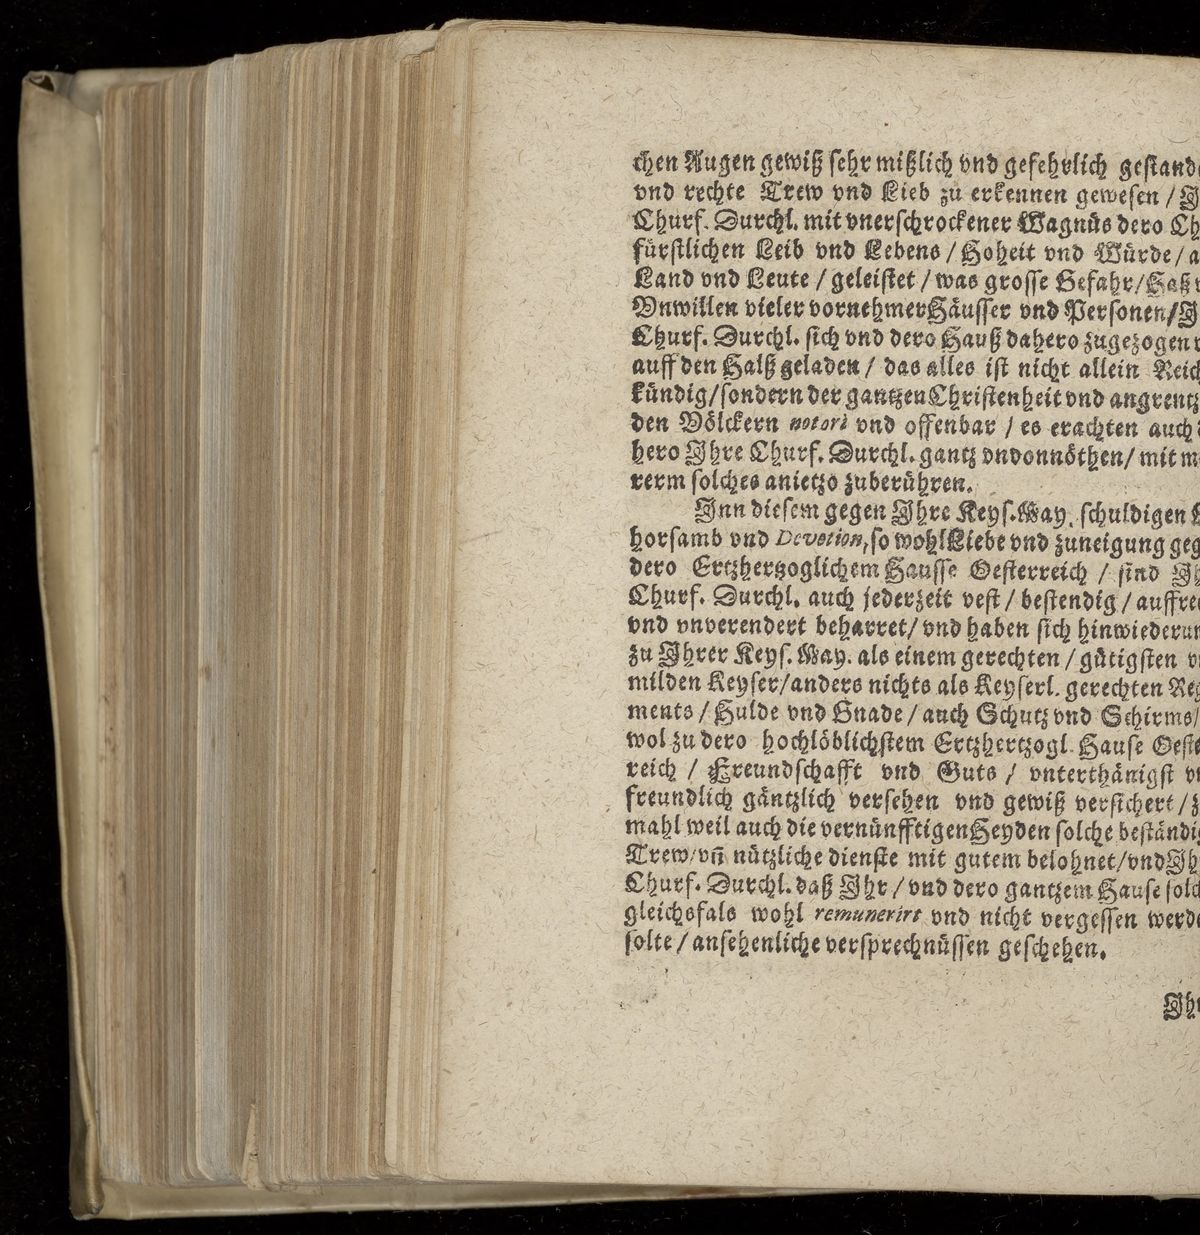 chen Augen gewiß sehr mißlich vnd gefehrlich gestand
vnd rechte Trew vnd Lieb zu erkennen gewesen / J
Churf. Durchl. mit vnerschrockener Wagnüs dero Ch
fürstlichen Leib vnd Lebens / Hoheit vnd Würde / a
Land vnd Leute / geleistet / was grosse Gefahr / Haß v
Vnwillen vieler vornehmer Häusser vnd Personen / J
Churf. Durchl. sich vnd dero Hauß dahero zugezogen v
auff den Halß geladen / das alles ist nicht allein Reich
kündig / sondern der gantzen Christenheit vnd angrentz
den Völckern notori vnd offenbar / es erachten auch d
hero Jhre Churf. Durchl. gantz vnvonnöthen / mit m
rerm solches anietzo zuberühren.
Jnn diesem gegen Jhre Keys. May. schuldigen
horsamb vnd Devotion, so wohl Liebe vnd zuneigung geg
dero Ertzhertzoglichem Hausse Oesterreich / sind Jh
Churf. Durchl. auch jederzeit vest / bestendig / auffrec
vnd vnverendert beharret / vnd haben sich hinwiederun
zu Jhrer Keys. May. als einem gerechten / gütigsten v
milden Keyser / anders nichts als Keyserl. gerechten Reg
ments / Hulde vnd Gnade / auch Schutz vnd Schirms /
wol zu dero hochlöblichstem Ertzhertzogl. Hause Oeste
reich / Freundschafft vnd Guts / vnterthänigst v
freundlich gäntzlich versehen vnd gewiß versichert / z
mahl weil auch die vernünfftigen Heyden solche beständig
Trew / vñ nützliche dienste mit gutem belohnet / vnd Jh
Churf. Durchl. daß Jhr / vnd dero gantzem Hause solc
gleichsfals wohl remunerirt vnd nicht vergessen werde
solte / ansehenliche versprechnüssen geschehen.
Jhr